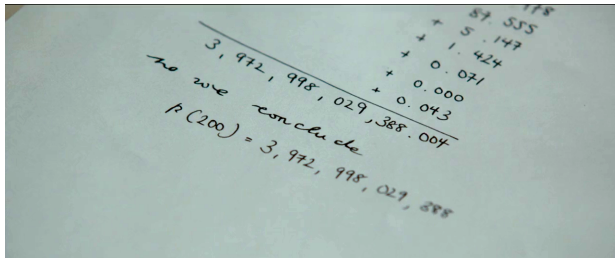 87.555
+ 5.147
+ 1.424
+ 0.071
+ 0.000
+ 0.043
3, 972, 998, 029, 388.004
so we conclude
p(200) = 3, 972, 998, 029, 388